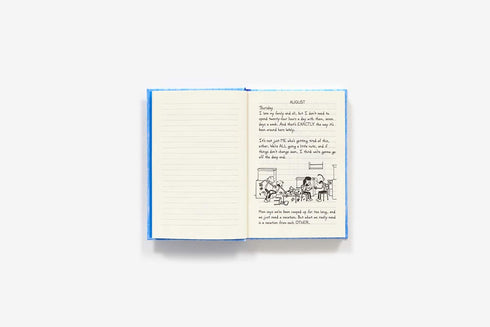 AUGUST
Thursday
I love my family and all, but I don't need to
spend twenty-four hours a day with them, seven
days a week. And that's EXACTLY the way it's
been around here lately.
It's not just ME who's getting tired of this,
either. We're ALL going a little nuts, and if
things don't change soon, I think we're gonna go
off the deep end.
Mom says we've been cooped up for too long, and
we just need a vacation. But what we really need
is a vacation from each OTHER.